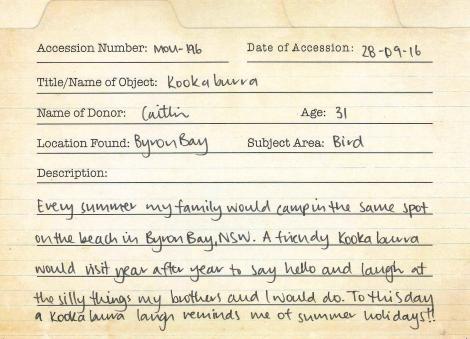 Accession Number: MOU-196 Date of Accession: 28-09-16
Title/Name of Object: Kookaburra
Name of Donor: Caitlin Age: 31
Location Found: Byron Bay Subject Area: Bird
Description:
Every summer my family would camp in the same spot
on the beach in Byron Bay, NSW. A friendy Kookaburra
would visit year after year to say hello and laugh at
the silly things my brothers and I would do. To this day
a Kookaburra laugh reminds me of summer holidays!!